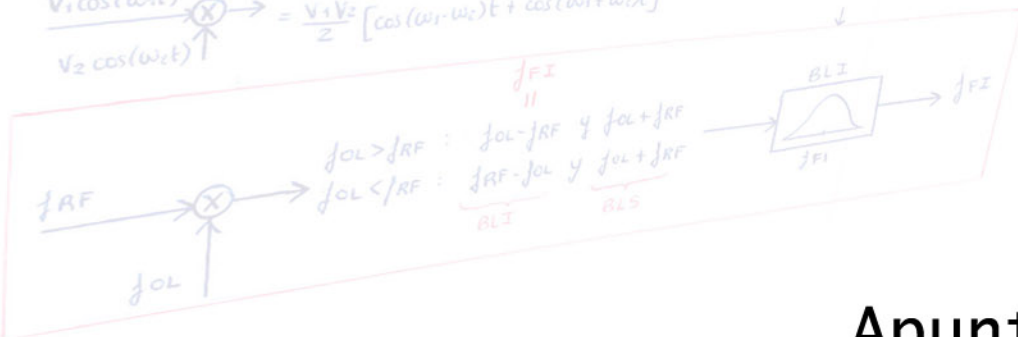 V1 cos(ω1t)
= V1V2/2 [cos(ω1-ω2)t + cos(ω1+ω2)t]
V2 cos(ω2t)
fFI
=
BLI
fOL>fRF : fOL-fRF y fOL+fRF
fFI
fOL<fRF : fRF-fOL y fOL+fRF
fFI
fRF
X
BLI
BLS
fOL
Apunt